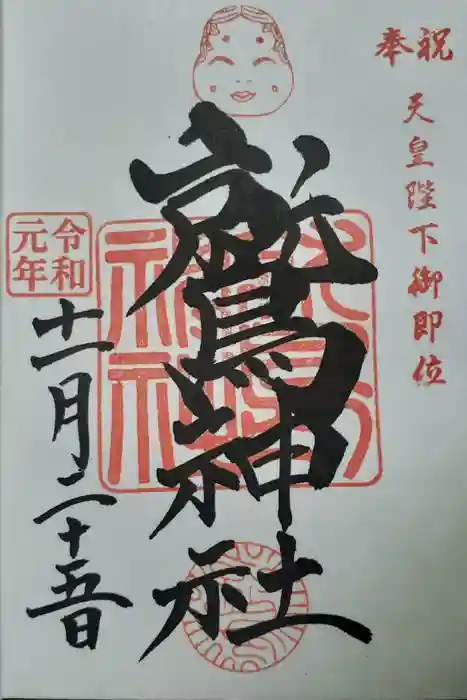 奉祝
天皇陛下御即位
鷲神社
令和
元年
十一月二十五日